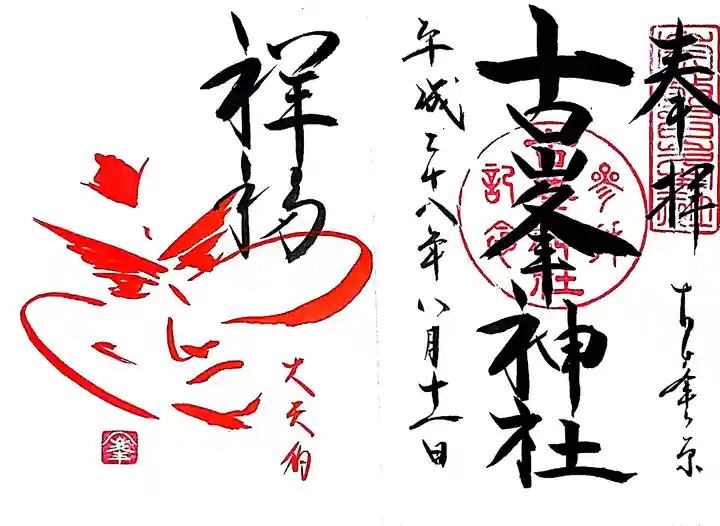 奉拝
古峯ヶ原
古峯神社
參拝記念
平成二十八年八月十一日
祥福
大天狗
峯